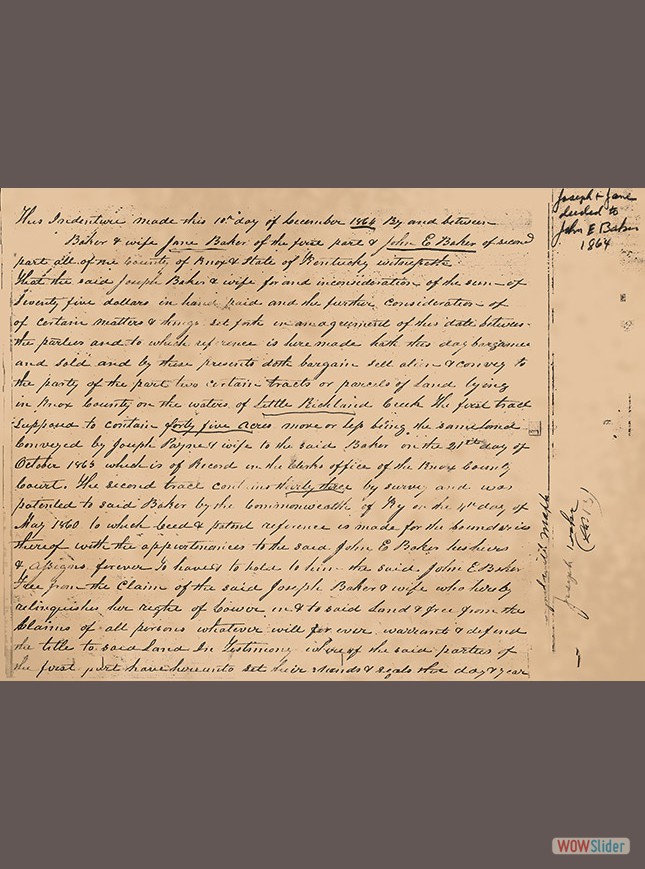 This Indenture made this 10th day of December 1864 By and between
Baker & wife Jane Baker of the first part & John E Baker of second
part all of the County of Knox & State of Kentucky witnesseth
That the said Joseph Baker & wife for and inconsideration of the sum of
Seventy five dollars in hand paid and the further consideration of
of certain matters & things set forth in an agreement of this date between
the parties and to which reference is here made hath this day bargained
and sold and by these presents doth bargain sell alien & convey to
the party of the part two certain tracts or parcels of Land lying
in Knox County on the waters of Little Richland Creek The first tract
supposed to contain forty five acres more or less being the same land
Conveyed by Joseph Payne & wife to the said Baker on the 21st day of
October 1863 which is of Record in the Clerks office of the Knox County
Court. The second tract contains thirty three by survey and was
patented to said Baker by the Commonwealth of Ky on the 4th day of
May 1860 to which Deed & patent reference is made for the boundaries
thereof with the appurtenances to the said John E Baker his heirs
& assigns forever To have & to hold to him the said John E Baker
Free from the Claim of the said Joseph Baker & wife who hereby
relinquishes her right of Dower in & to said Land & free from the
Claims of all persons whatever will for ever warrant & defend
the title to said Land In Testimony where of the said parties of
the first part have hereunto set their hands & seals the day & year
Joseph & Jane
deeded to
John E Baker
1864
Joseph
WOWSlider